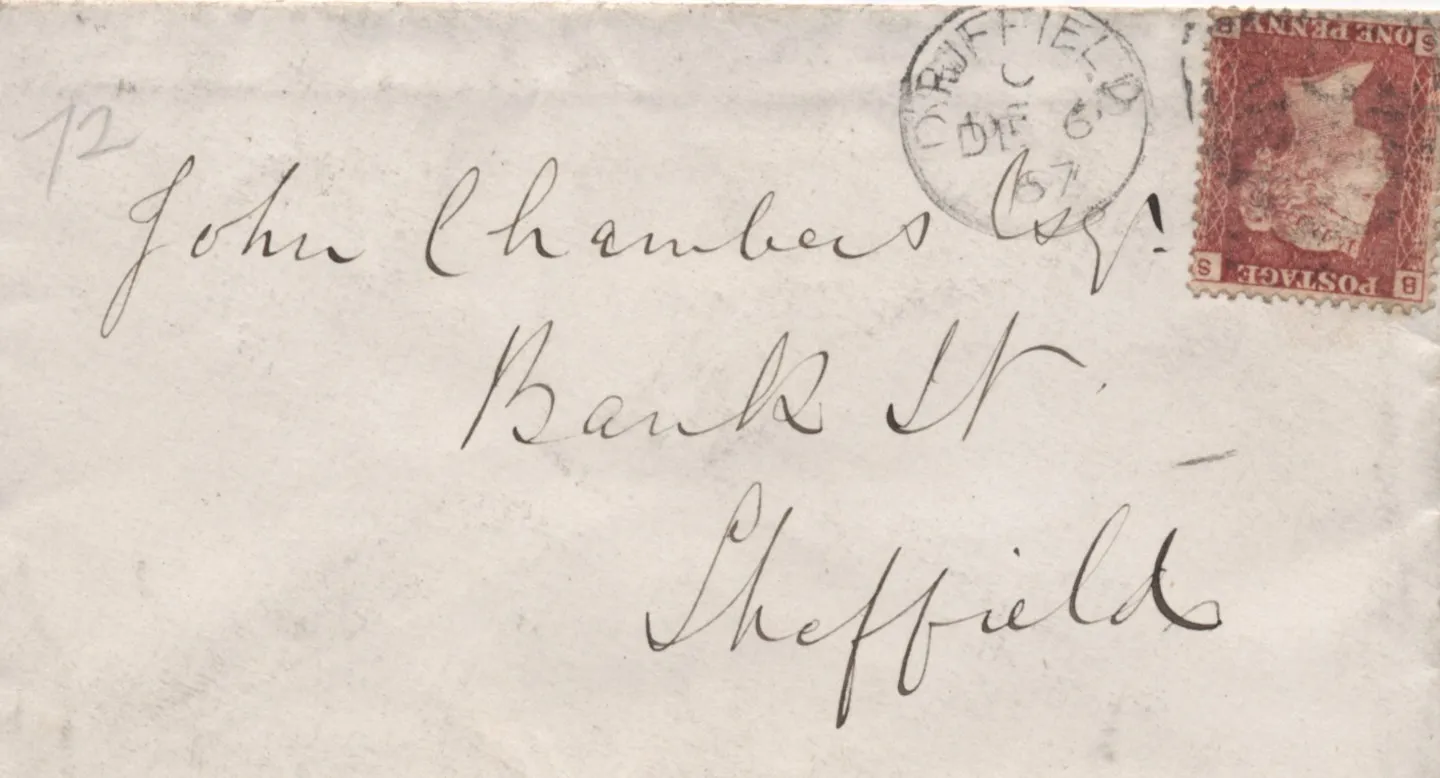 DRIFFIELD
C
DE 6
67
ONE PENNY
B S
S B
POSTAGE
72
John Chambers Esqr.
Bank St
Sheffield